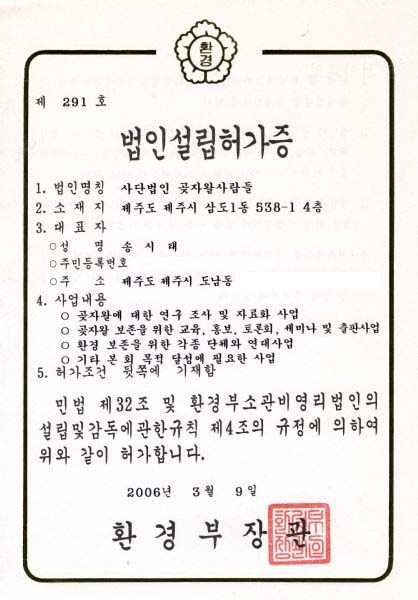 환경
제 291 호
법인설립허가증
1. 법인명칭 사단법인 곶자왈사람들
2. 소 재 지 제주도 제주시 삼도1동 538-1 4층
3. 대 표 자
○성 명 송 시 태
○주민등록번호
○주 소 제주도 제주시 도남동
4. 사업내용
○ 곶자왈에 대한 연구 조사 및 자료화 사업
○ 곶자왈 보존을 위한 교육, 홍보, 토론회, 세미나 및 출판사업
○ 환경 보존을 위한 각종 단체와 연대사업
○ 기타 본 회 목적 달성에 필요한 사업
5. 허가조건 뒷쪽에 기재함
민법 제32조 및 환경부소관비영리법인의
설립및감독에관한규칙 제4조의 규정에 의하여
위와 같이 허가합니다.
2006년 3월 9일
환 경 부 장 관